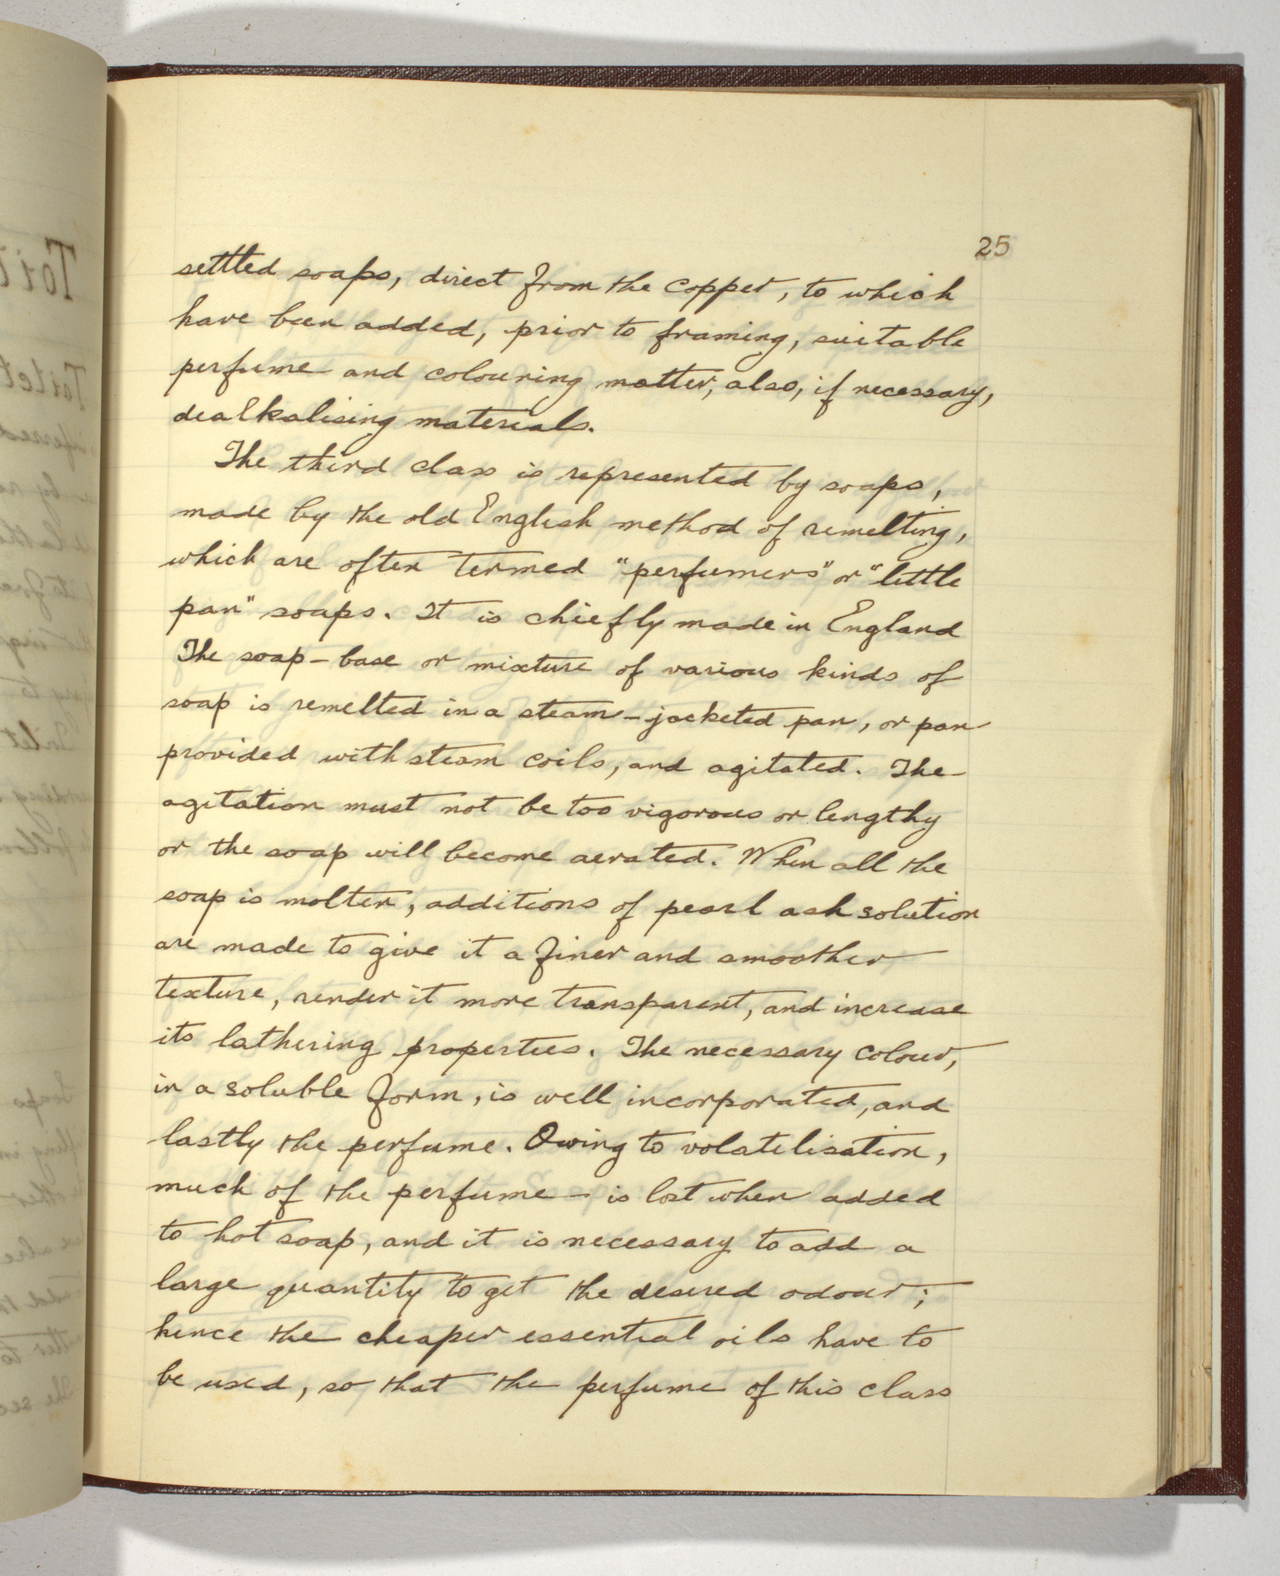 25
settled soaps, direct from the copper, to which
have been added, prior to framing, suitable
perfume and colouring matter, also, if necessary,
dealkalising materials.
The third class is represented by soaps,
made by the old English method of remelting,
which are often termed "perfumers" or "little
pan" soaps. It is chiefly made in England
The soap-base or mixture of various kinds of
soap is remelted in a steam-jacketed pan, or pan
provided with steam coils, and agitated. The
agitation must not be too vigorous or lengthy
or the soap will become aerated. When all the
soap is molten, additions of pearl ash solution
are made to give it a finer and smoother
texture, render it more transparent, and increase
its lathering properties. The necessary colour,
in a soluble form, is well incorporated, and
lastly the perfume. Owing to volatilisation,
much of the perfume - is lost when added
to hot soap, and it is necessary to add a
large quantity to get the desired odour;
hence the cheaper essential oils have to
be used, so that the perfume of this class